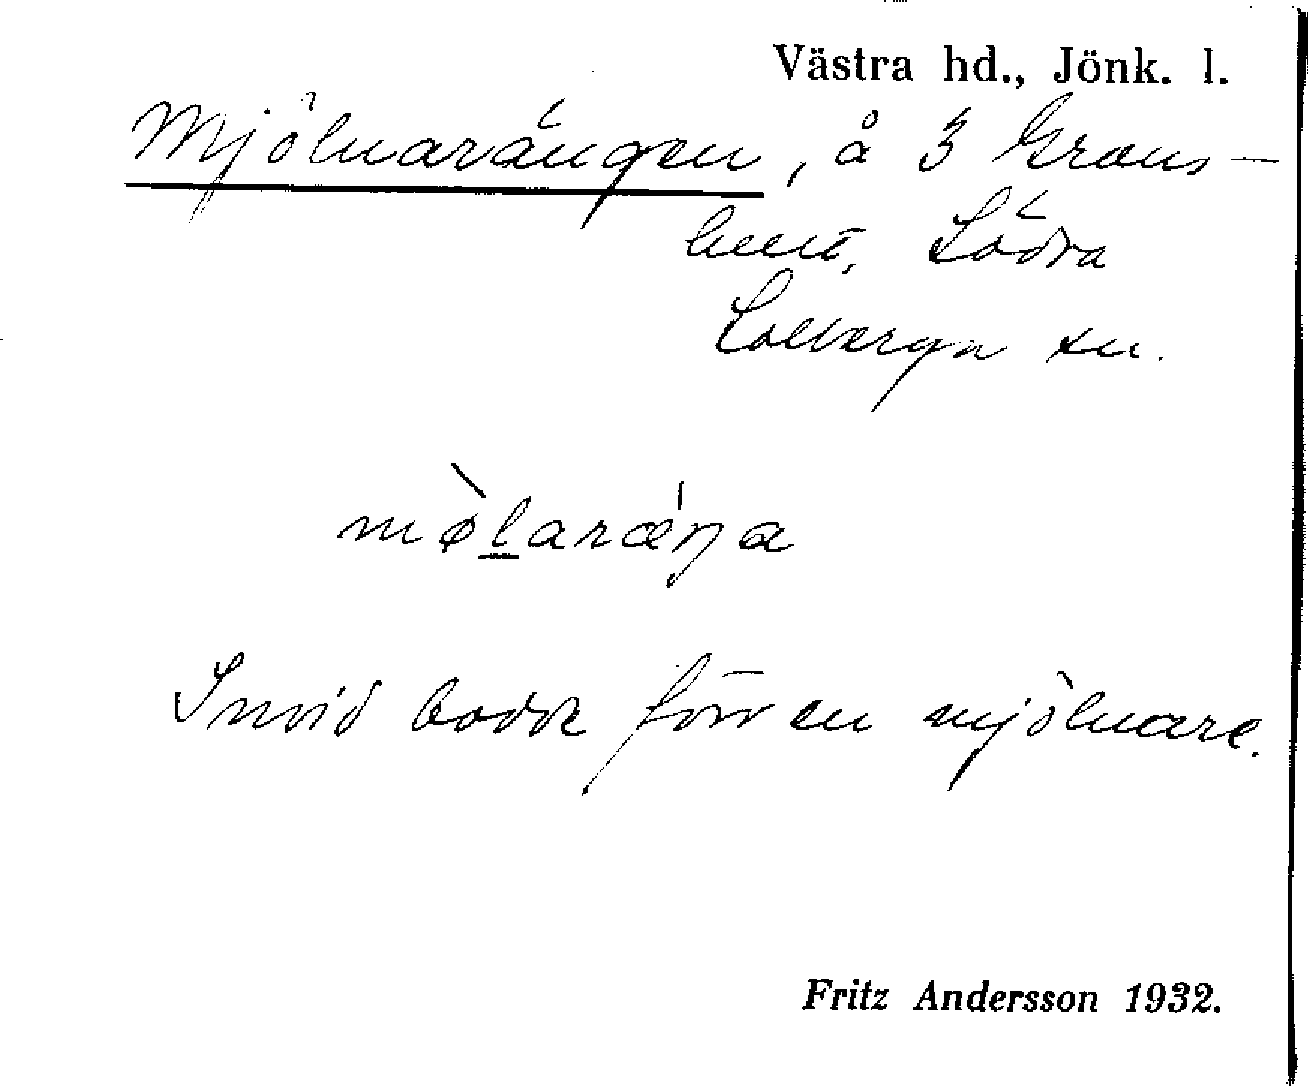 Västra hd., Jönk. l.
Mjölnarängen, å 3 Grans-
hult, Södra
Solberga sn.
mø̀laræ̍ŋa
Invid bodde förr en mjölnare.
Fritz Andersson 1932.